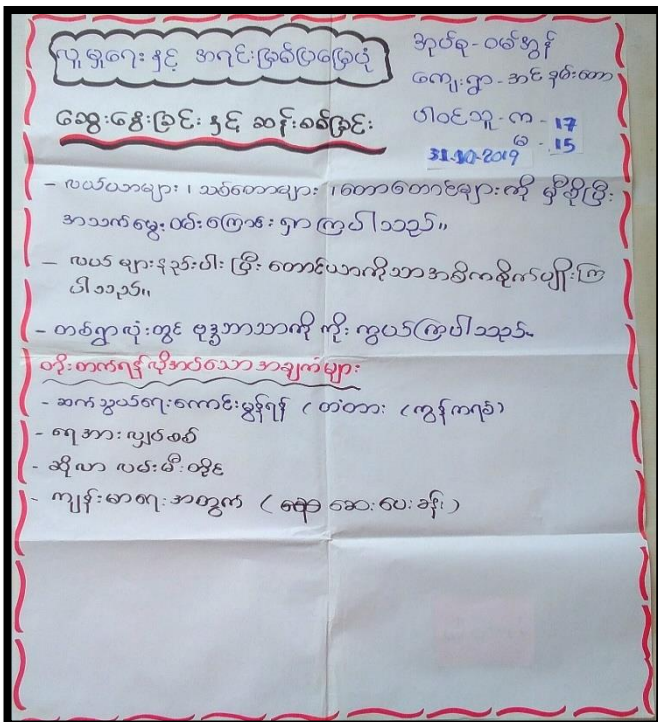 လူမှုရေး နှင့် အရင်းမြစ်ပြမြေပုံ
ဆွေးနွေးခြင်း နှင့် ဆန်းစစ်ခြင်း
အုပ်စု - ဝမ်အွန်
ကျေးရွာ - အင်နမ်းတော
ပါဝင်သူ - က - 17
မ - 15
31.10-2019
- လယ်ယာများ ၊ သစ်တောများ ၊ တောတောင်များကို မှီခိုပြီး
အသက်မွေး ဝမ်းကြောင်း ရှာကြပါသည်။
- လယ် များနည်းပါး ပြီး တောင်ယာကိုသာ အဓိကစိုက်ပျိုးကြ
ပါသည်။
- တစ်ရွာလုံးတွင် ဗုဒ္ဓဘာသာကို ကိုးကွယ်ကြပါသည်
တိုးတက်ရန် လိုအပ်သော အချက်များ
- ဆက်သွယ်ရေးကောင်းမွန်ရန် ( တံတား ( ကွန်ကရစ် )
- ရေအားလျှပ်စစ်
- ဆိုလာ လမ်းမီးတိုင်
- ကျန်းမာရေး အတွက် ( ဆေးပေးခန်း )